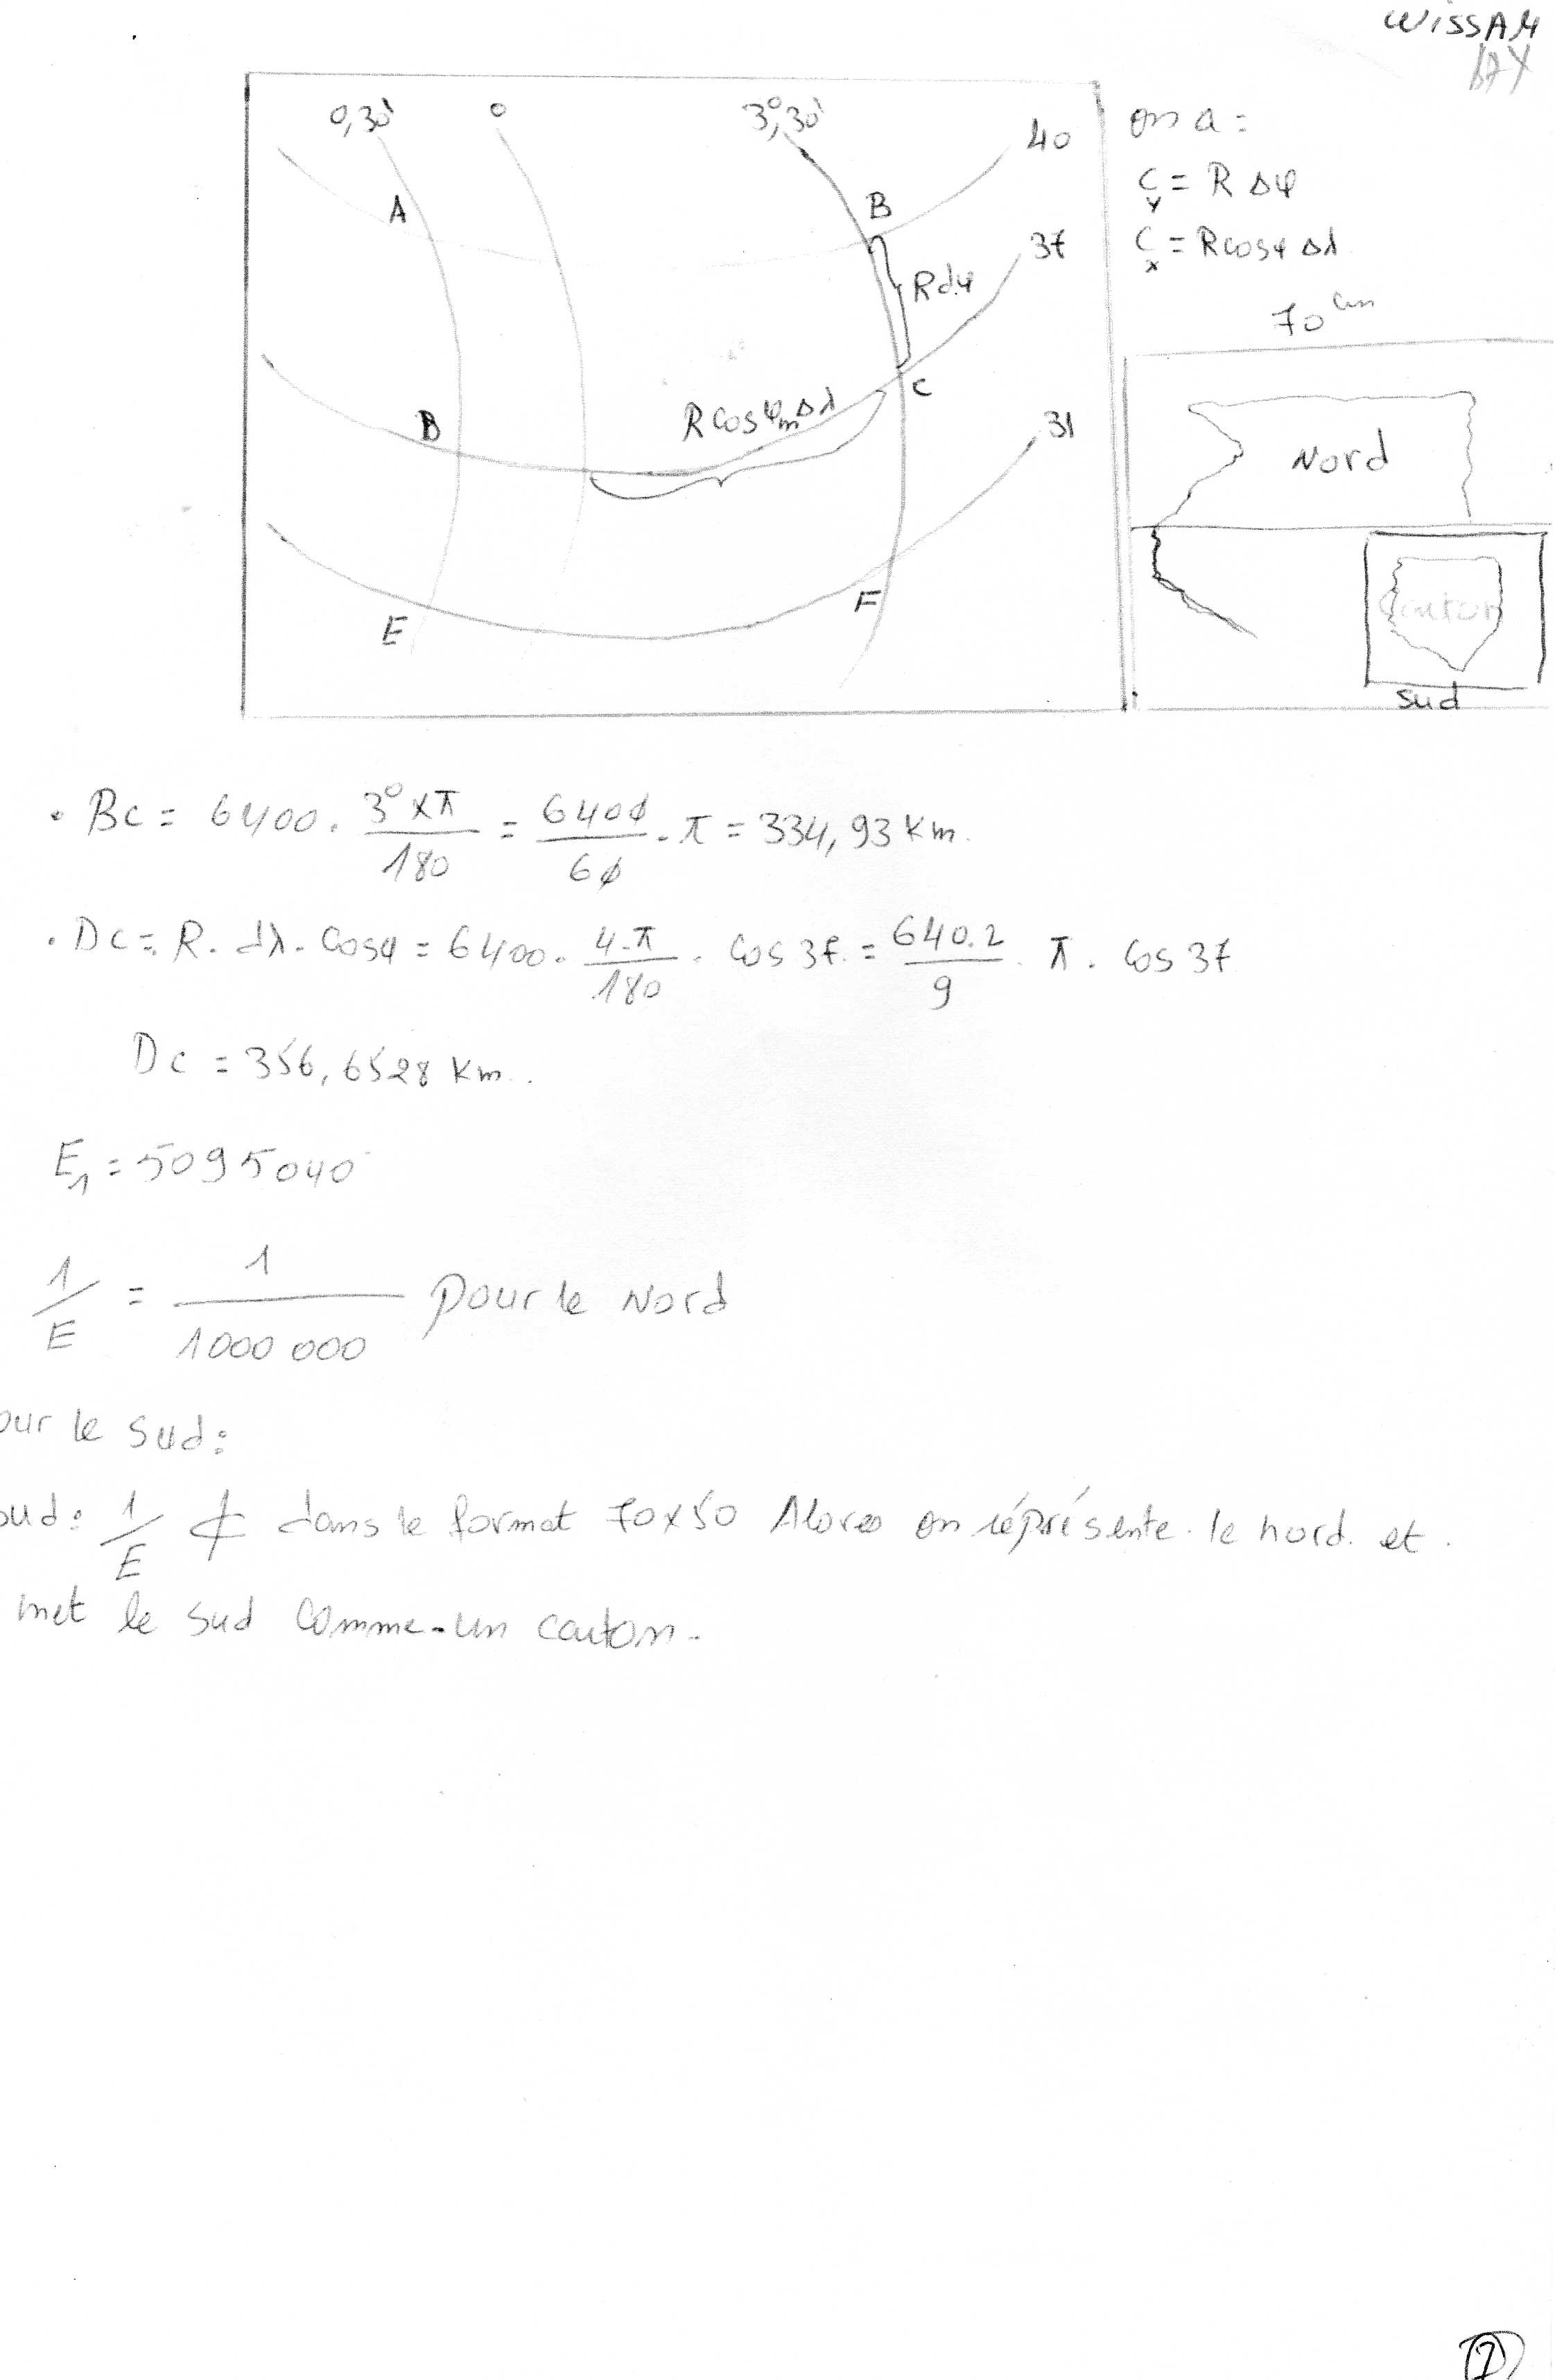 WISSAM
0,30'
0
3°,30'
40
on a :
A
B
C = R Δφ
y
37
C = R cosφ Δλ
x
R dφ
70 cm
C
R cosφm Δλ
31
B
Nord
F
E
Canton
sud
• BC = 6400 . 3° x π / 180 = 6400 / 60 . π = 334,93 km.
• DC = R . dλ . cosφ = 6400 . 4.π / 180 . cos 37. = 640.2 / 9 . π . cos 37
DC = 356,6528 km.
E1 = 5095040
1 / E = 1 / 1000 000 pour le Nord
our le sud :
oud : 1 / E ⊄ dans le format 70x50 Alores on réprésente le nord. et
met le sud comme un canton.
1